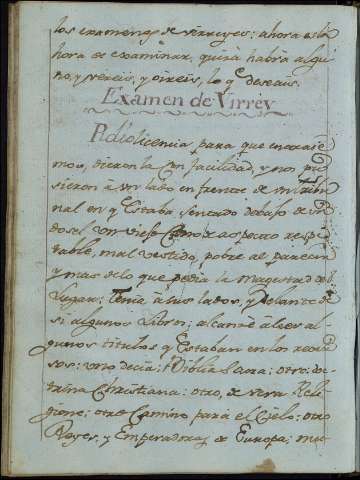 los examenes de virreyes; ahora es la
hora de examinar, quizá habrá algu
no, y vereis, y oireis, lo q̃ deseais.
Examen de Virrey
Pidió licencia para que entrase
mos, dieronla con facilidad, y nos pu
sieron á un lado en frente de un tribu
nal en q̃ estaba sentado debaxo de un
dosel un viejo Cano, de aspecto respe
table, mal vestido, pobre al parecer
y mas de lo que pedia la magestad del
Lugar: tenia á sus lados, y delante de
sí algunos Libros; alcanzé á leer al
gunos titulos q̃ estaban en los rotu
los: uno decia: Biblia Sacra; otro: doc
trina Christiana; otro, de vera Reli
gione; otro Camino para el Cielo; otro
Reyes, y Emperadores de Europa; mu